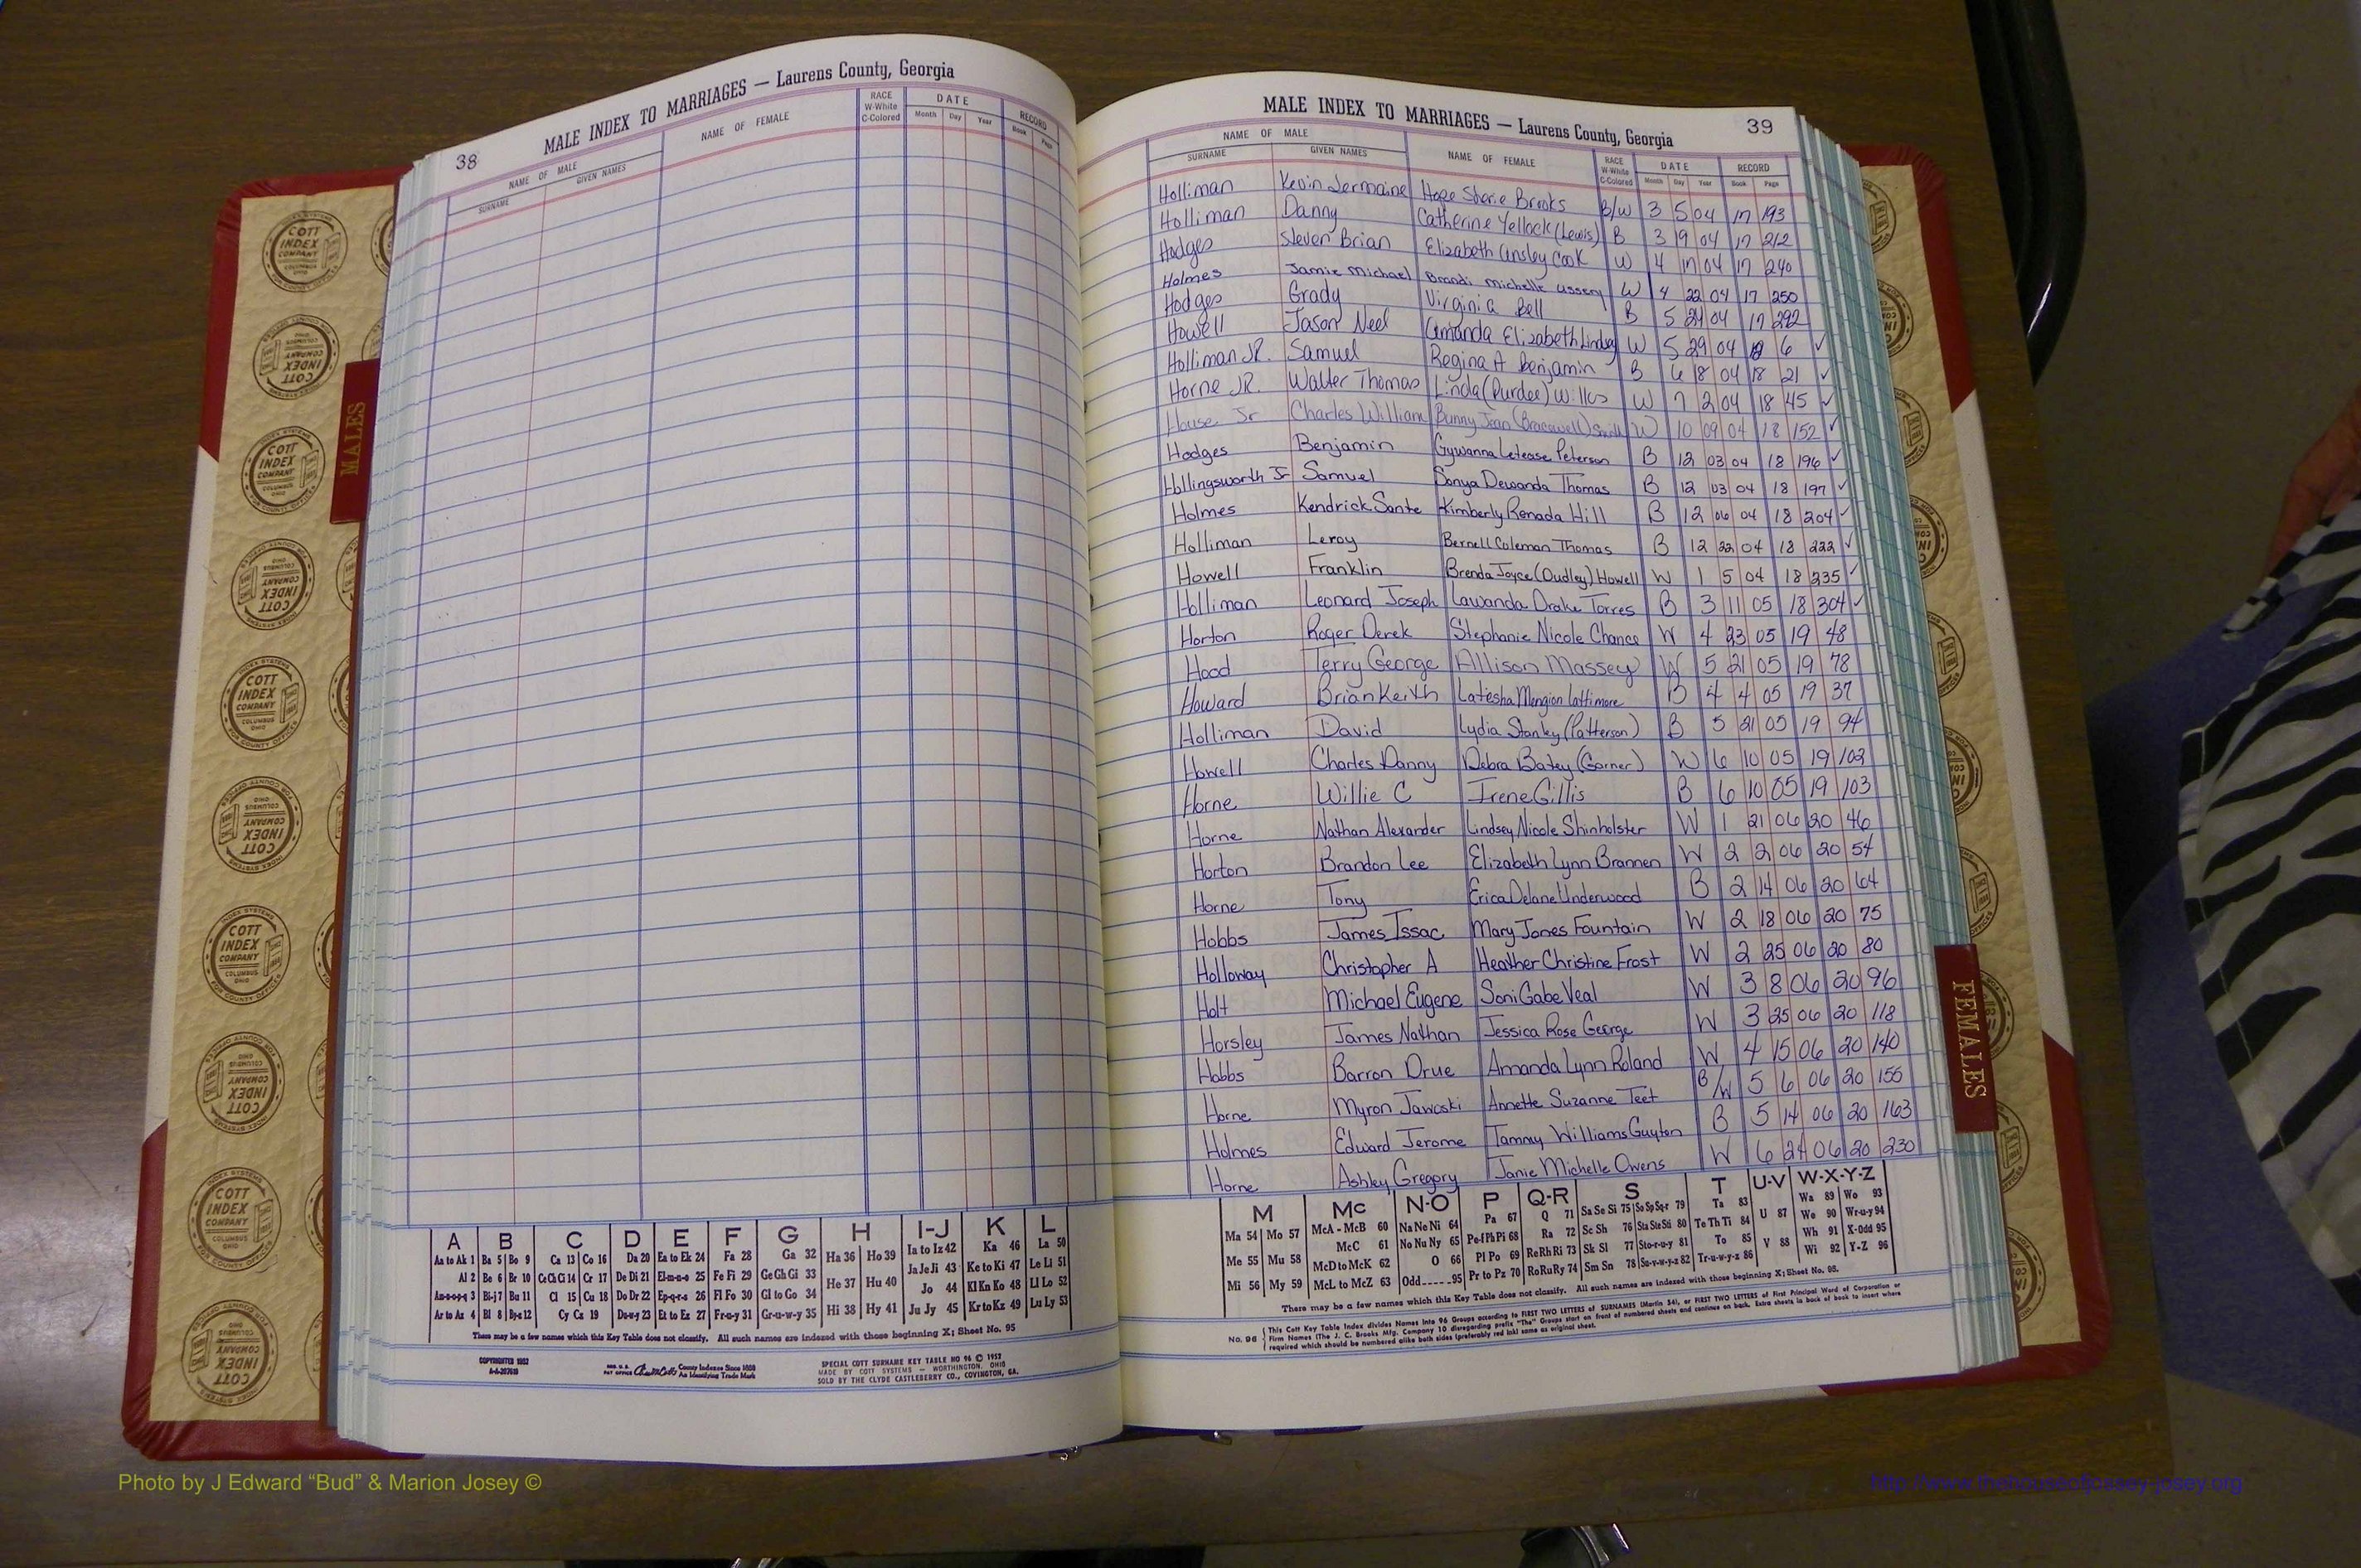 38
MALE INDEX TO MARRIAGES — Laurens County, Georgia
NAME OF MALE
SURNAME GIVEN NAMES
NAME OF FEMALE
RACE W-White C-Colored
DATE
Month Day Year
RECORD
Book Page
MALE INDEX TO MARRIAGES — Laurens County, Georgia 39
NAME OF MALE
SURNAME GIVEN NAMES NAME OF FEMALE
RACE W-White C-Colored
DATE
Month Day Year
RECORD
Book Page
Holliman Kevin Jermaine Hope Sherie Brooks B/W 3 5 04 17 193
Holliman Danny Catherine Yellock (Lewis) B 3 19 04 17 212
Hodges Steven Brian Elizabeth Ansley Cook W 4 17 04 17 240
Holmes Jamie Michael Brandi Michelle Ussery W 4 22 04 17 250
Hodges Grady Virginia Bell B 5 24 04 17 292
Howell Jason Neel Amanda Elizabeth Lindsey W 5 29 04 18 6 ✓
Holliman JR. Samuel Regina A Benjamin B 6 8 04 18 21 ✓
Horne JR. Walter Thomas Linda (Purdee) Willis W 7 2 04 18 45 ✓
House Jr Charles William Bunny Jean (Bracewell) Smith W 10 09 04 18 152 ✓
Hodges Benjamin Gywanna Letease Peterson B 12 03 04 18 196 ✓
Hollingsworth Jr Samuel Sonya Dewanda Thomas B 12 03 04 18 197 ✓
Holmes Kendrick Sante Kimberly Renada Hill B 12 06 04 18 204 ✓
Holliman Leroy Bernell Coleman Thomas B 12 22 04 18 222 ✓
Howell Franklin Brenda Joyce (Dudley) Howell W 1 5 04 18 235 ✓
Holliman Leonard Joseph Lawanda Drake Torres B 3 11 05 18 304 ✓
Horton Roger Derek Stephanie Nicole Chance W 4 23 05 19 48
Hood Terry George Allison Massey W 5 21 05 19 78
Howard Brian Keith Latesha Mengion Lattimore B 4 4 05 19 37
Holliman David Lydia Stanley (Patterson) B 5 21 05 19 94
Howell Charles Danny Debra Batey (Garner) W 6 10 05 19 102
Horne Willie C Irene Gillis B 6 10 05 19 103
Horne Nathan Alexander Lindsey Nicole Shinholster W 1 21 06 20 46
Horton Brandon Lee Elizabeth Lynn Brannen W 2 2 06 20 54
Horne Tony Erica Delane Underwood B 2 14 06 20 64
Hobbs James Issac Mary Jones Fountain W 2 18 06 20 75
Holloway Christopher A Heather Christine Frost W 2 25 06 20 80
Holt Michael Eugene Soni Gabe Veal W 3 8 06 20 96
Horsley James Nathan Jessica Rose George W 3 25 06 20 118
Hobbs Barron Drue Amanda Lynn Roland W 4 15 06 20 140
Horne Myron Jawoski Annette Suzanne Teet B/W 5 6 06 20 155
Holmes Edward Jerome Tammy Williams Guyton B 5 14 06 20 163
Horne Ashley Gregory Janie Michelle Owens W 6 24 06 20 230
A B C D E F G H I-J K L
Aa to Ak 1 Ba 5 Bo 9 Ca 13 Co 16 Da 20 Ea to Ek 24 Fa 28 Ga 32 Ha 36 Ho 39 Ia to Iz 42 Ka 46 La 50
Al 2 Be 6 Br 10 Ce Ch Ci 14 Cr 17 De Di 21 El-m-n-o 25 Fe Fi 29 Ge Gh Gi 33 He 37 Hu 40 Ja Je Ji 43 Ke to Ki 47 Le Li 51
Am-n-o-p-q 3 Bi-j 7 Bu 11 Cl 15 Cu 18 Do Dr 22 Ep-q-r-s 26 Fl Fo 30 Gl to Go 34 Hi 38 Hy 41 Jo 44 Kl Kn Ko 48 Ll Lo 52
Ar to Az 4 Bl 8 By-z 12 Cy Cz 19 Du-w-y 23 Et to Ez 27 Fr-u-y 31 Gr-u-w-y 35 Ju Jy 45 Kr to Kz 49 Lu Ly 53
There may be a few names which this Key Table does not classify. All such names are indexed with those beginning X; Sheet No. 95
COPYRIGHTED 1952
County Indexes Since 1888
An Identifying Trade Mark
SPECIAL COTT SURNAME KEY TABLE NO 96 © 1952
MADE BY COTT SYSTEMS — WORTHINGTON, OHIO
SOLD BY THE CLYDE CASTLEBERRY CO., COVINGTON, GA.
M Mc N-O P Q-R S T U-V W-X-Y-Z
Ma 54 Mo 57 McA - McB 60 Na Ne Ni 64 Pa 67 Q 71 Sa Se Si 75 So Sp Sq-r 79 Ta 83 U 87 Wa 89 Wo 93
Me 55 Mu 58 McC 61 No Nu Ny 65 Pe-f Ph Pi 68 Ra 72 Sc Sh 76 Sta Ste Sti 80 Te Th Ti 84 V 88 We 90 Wr-u-y 94
Mi 56 My 59 McD to McK 62 O 66 Pl Po 69 Re Rh Ri 73 Sk Sl 77 Sto-r-u-y 81 To 85 Wh 91 X-Odd 95
McL to McZ 63 Odd 95 Pr to Pz 70 Ro Ru Ry 74 Sm Sn 78 Su-v-w-y-z 82 Tr-u-w-y-z 86 Wi 92 Y-Z 96
There may be a few names which this Key Table does not classify. All such names are indexed with those beginning X; Sheet No. 95.
No. 96 This Cott Key Table Index divides Names into 96 Groups according to FIRST TWO LETTERS of SURNAMES (Martin 54), or FIRST TWO LETTERS of First Principal Word of Corporation or
Firm Names (The J. C. Brooks Mfg. Company 10 disregarding prefix "The" Groups start on front of numbered sheets and continue on back. Extra sheets in back of book to insert where
required which should be numbered alike both sides (preferably red ink) same as original sheet.
MALES
FEMALES
COTT INDEX COMPANY COLUMBUS OHIO
INDEX SYSTEMS FOR COUNTY OFFICES
Photo by J Edward “Bud” & Marion Josey ©
http://www.thehouseofjossey-josey.org